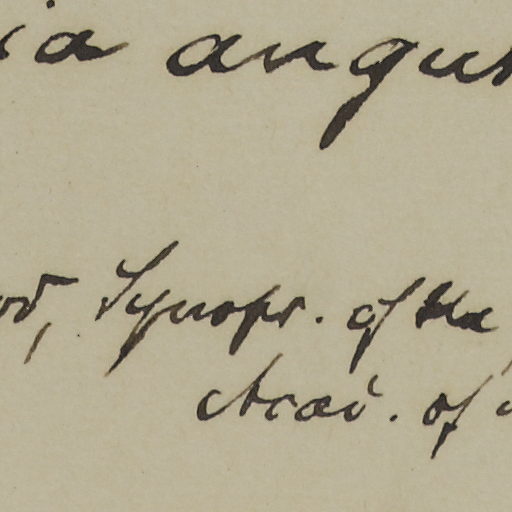 ia angus
od, Synops. of the
Acad. of